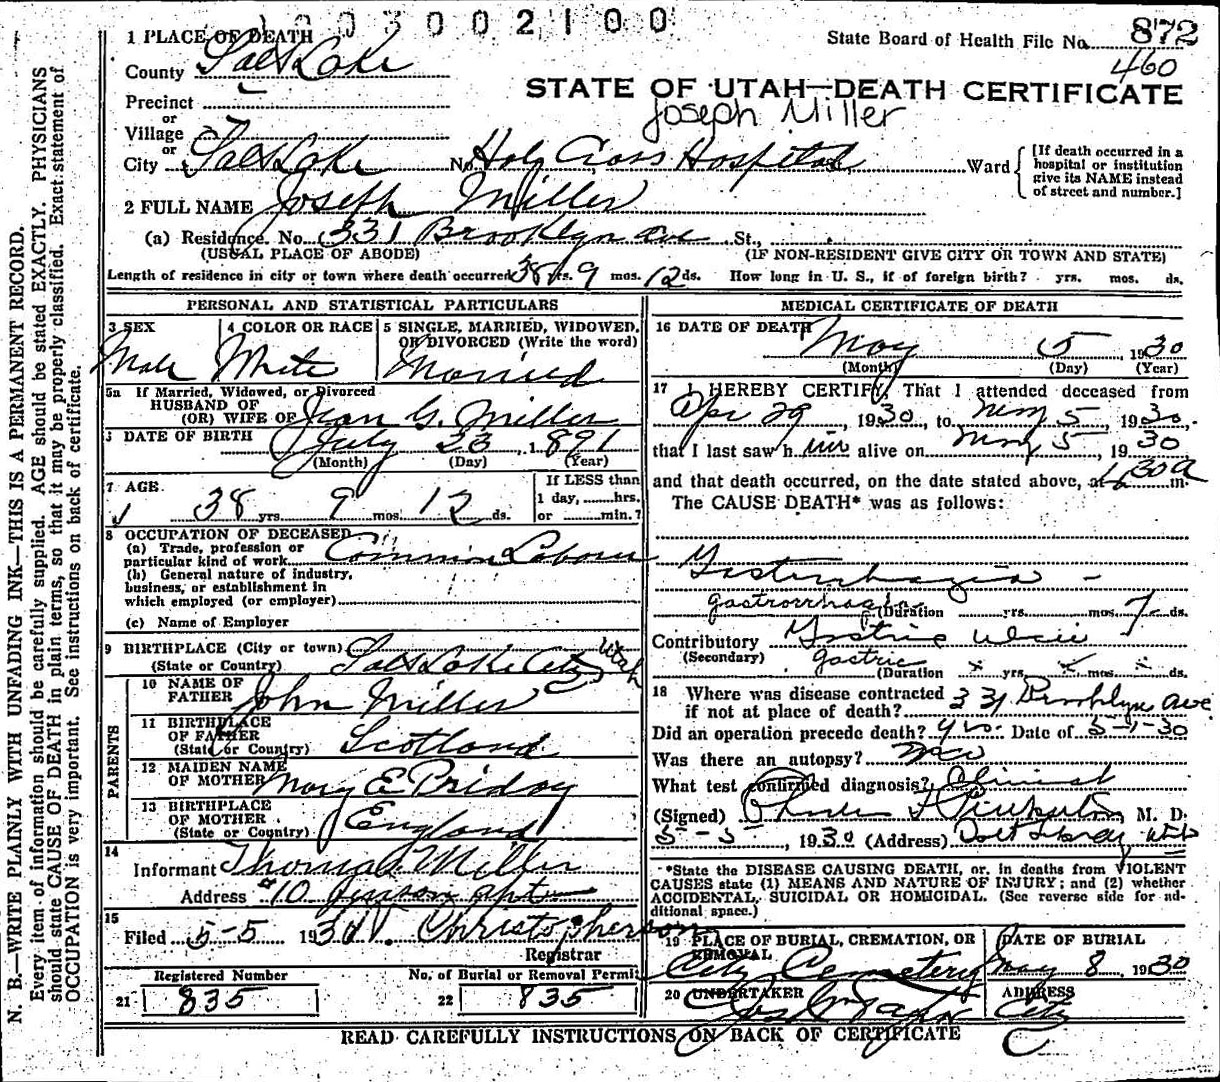 1003002100
1 PLACE OF DEATH
State Board of Health File No. 872
County Salt Lake
460
STATE OF UTAH—DEATH CERTIFICATE
Precinct
or
Village
Joseph Miller
or
City Salt Lake No. Holy Cross Hospital St., Ward
[If death occurred in a hospital or institution give its NAME instead of street and number.]
2 FULL NAME Joseph Miller
(a) Residence. No. 331 Brooklyn Ave St.,
(USUAL PLACE OF ABODE) (IF NON-RESIDENT GIVE CITY OR TOWN AND STATE)
Length of residence in city or town where death occurred 38 yrs. 9 mos. 12 ds. How long in U. S., if of foreign birth? yrs. mos. ds.
PERSONAL AND STATISTICAL PARTICULARS
3 SEX 4 COLOR OR RACE 5 SINGLE, MARRIED, WIDOWED, OR DIVORCED (Write the word)
Male White Married
5a If Married, Widowed, or Divorced
HUSBAND OF
(OR) WIFE OF Jean G. Miller
DATE OF BIRTH July 23, 1891
(Month) (Day) (Year)
7 AGE 38 yrs. 9 mos. 12 ds.
If LESS than 1 day, hrs. or min.?
8 OCCUPATION OF DECEASED
(a) Trade, profession or particular kind of work Common Laborer
(b) General nature of industry, business, or establishment in which employed (or employer)
(c) Name of Employer
9 BIRTHPLACE (City or town) Salt Lake City Utah
(State or Country)
PARENTS
10 NAME OF FATHER John Miller
11 BIRTHPLACE OF FATHER Scotland
(State or Country)
12 MAIDEN NAME OF MOTHER Mary E Priday
13 BIRTHPLACE OF MOTHER England
(State or Country)
14
Informant Thomas Miller
Address #10
15
Filed 5-5 1930 N. Christopherson
Registrar
Registered Number No. of Burial or Removal Permit
21 835 22 835
MEDICAL CERTIFICATE OF DEATH
16 DATE OF DEATH May 5, 1930
(Month) (Day) (Year)
17 I HEREBY CERTIFY, That I attended deceased from
Apr 29, 1930, to May 5, 1930,
that I last saw him alive on May 5, 1930
and that death occurred, on the date stated above, at 4:30 a m.
The CAUSE DEATH* was as follows:
Gastrorrhagia
gastrorrhagia (Duration yrs. mos. 7 ds.
Contributory Gastric ulcer
(Secondary) gastric (Duration yrs. mos. ds.
18 Where was disease contracted
if not at place of death? 331 Brooklyn Ave
Did an operation precede death? yes. Date of 5-1-30
Was there an autopsy? no
What test confirmed diagnosis? Clinical
(Signed) Pinkerton, M. D.
5-5, 1930 (Address)
*State the DISEASE CAUSING DEATH, or, in deaths from VIOLENT
CAUSES state (1) MEANS AND NATURE OF INJURY; and (2) whether
ACCIDENTAL, SUICIDAL OR HOMICIDAL. (See reverse side for ad-
ditional space.)
19 PLACE OF BURIAL, CREMATION, OR REMOVAL DATE OF BURIAL
City Cemetery May 8, 1930
20 UNDERTAKER ADDRESS
City
READ CAREFULLY INSTRUCTIONS ON BACK OF CERTIFICATE
N. B.—WRITE PLAINLY WITH UNFADING INK—THIS IS A PERMANENT RECORD.
Every item of information should be carefully supplied. AGE should be stated EXACTLY. PHYSICIANS
should state CAUSE OF DEATH in plain terms, so that it may be properly classified. Exact statement of
OCCUPATION is very important. See instructions on back of certificate.